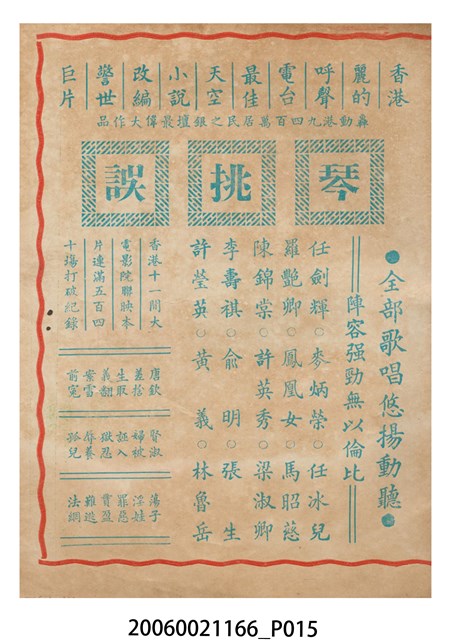 香港
麗的
呼聲
電台
最佳
天空
小說
改編
警世
巨片
轟動港九四百萬居民之銀壇最偉大作品
琴挑誤
●全部歌唱悠揚動聽●
陣容强勁無以倫比
任劍輝○麥炳榮○任冰兒
羅艷卿○鳳凰女○馬昭慈
陳錦棠○許英秀○梁淑卿
李壽祺○俞明○張生
許瑩英○黃義○林魯岳
香港十一間大
電影院聯映本
片連滿五百四
十場打破紀錄
唐欽
差捨
生取
義翻
案雪
前冤
賢淑
婦被
誣入
獄忍
辱養
孤兒
蕩子
淫娃
罪惡
貫盈
難逃
法網
20060021166_P015